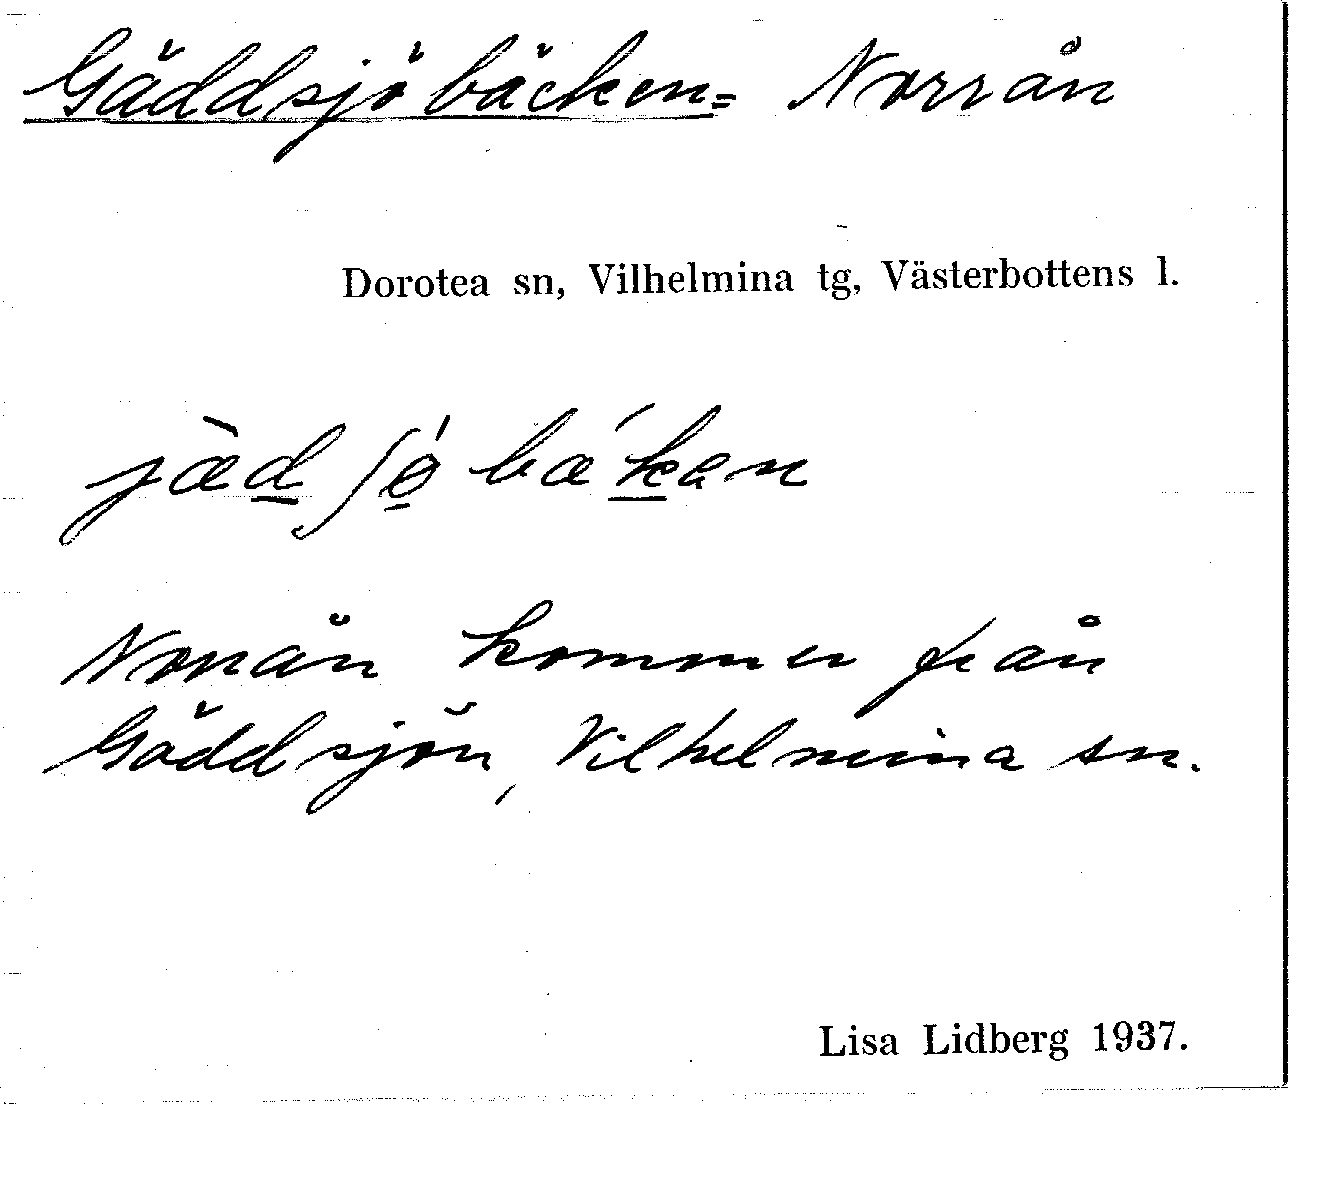 Gäddsjöbäcken = Norrån
Dorotea sn, Vilhelmina tg, Västerbottens l.
jæ̀d̲ʃǿ̲bæ´k̲en
Norrån kommer från
Gäddsjön, Vilhelmina sn.
Lisa Lidberg 1937.